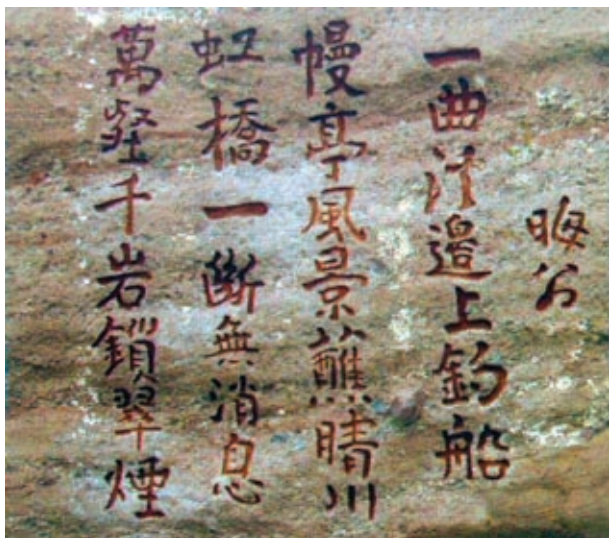 晦翁
一曲溪邊上釣船
幔亭風景蘸晴川
虹橋一斷無消息
萬壑千岩鎖翠煙